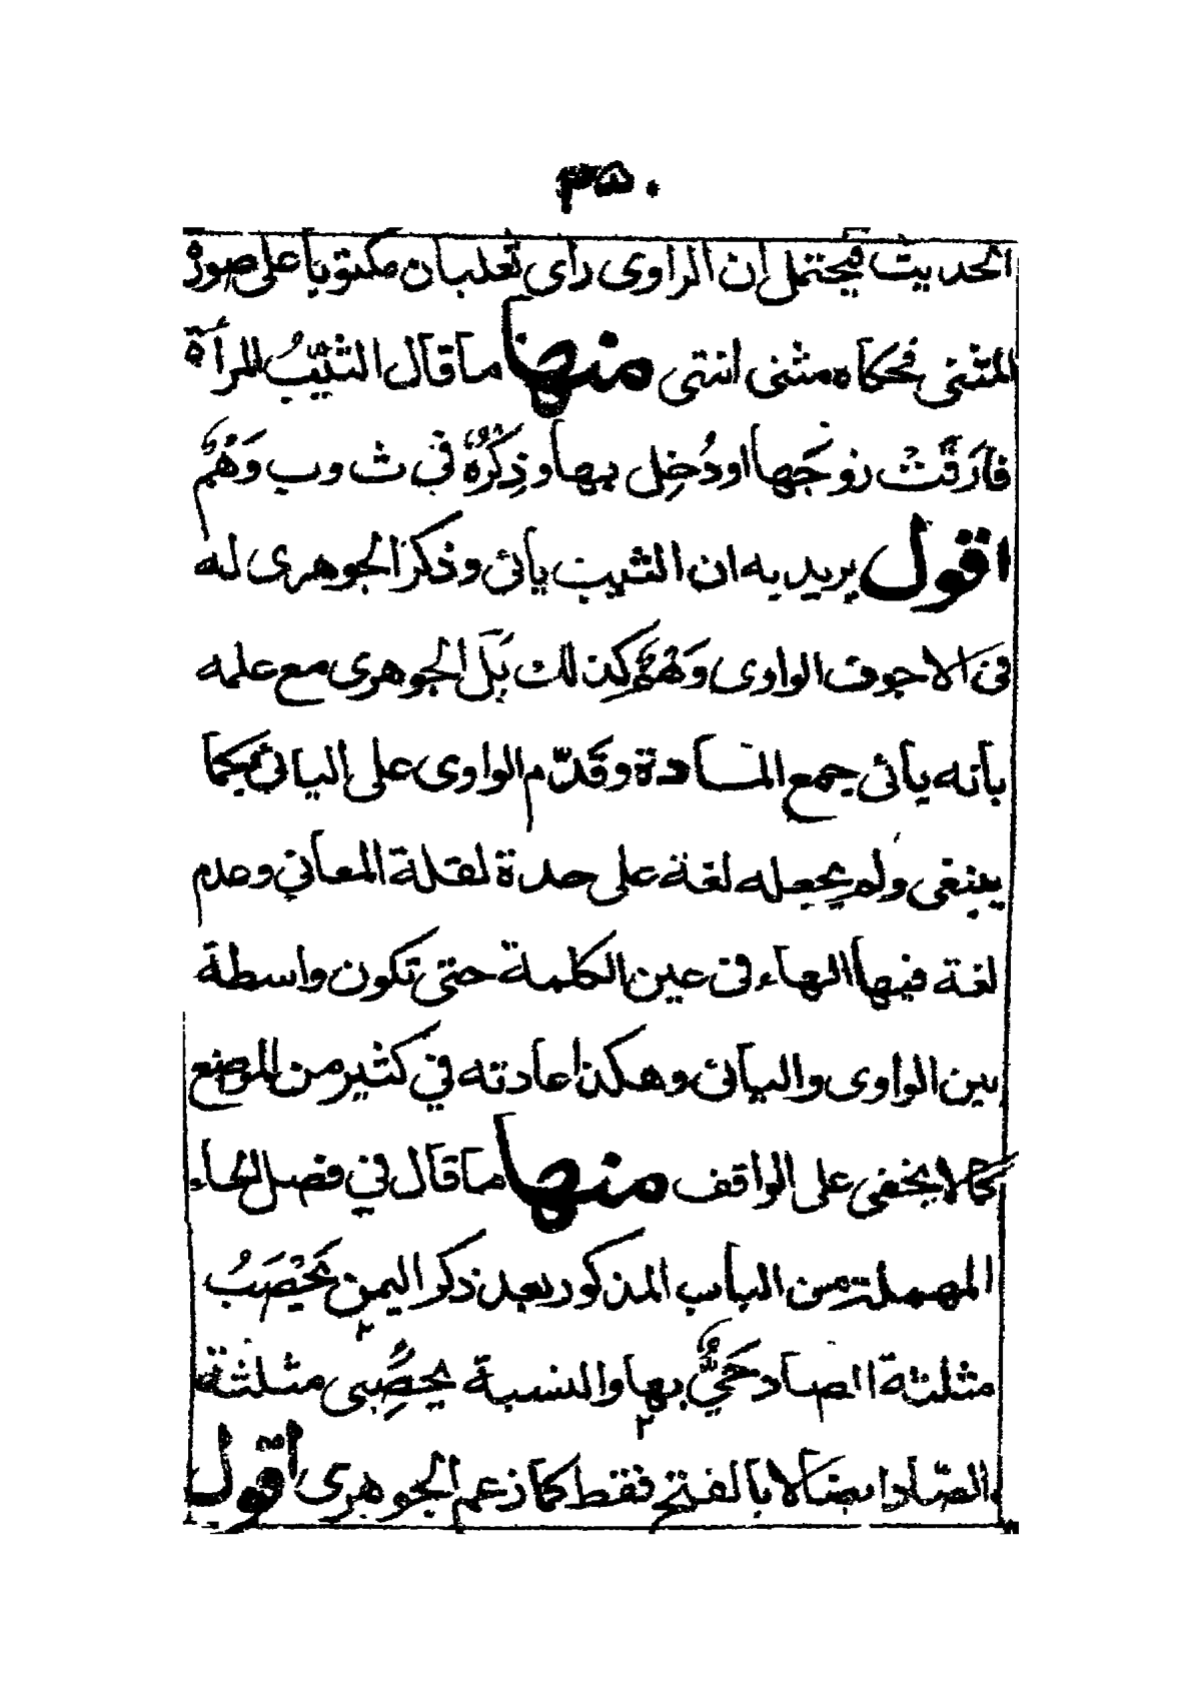 ٣٥٠
الحديث فيحتمل ان الراوى راى ثعلبان مكتوبا على صورة
المثنى فحكاه مثنى انتهى منها ما قال الثَّيِّبُ المرأة
فارَقَتْ زوجَها او دُخِل بها وذِكْرُهُ فى ث وب وَهْمٌ
اقول يريد به ان الثيب يائى وذكر الجوهرى له
فى الاجوف الواوى وَهْمٌ كذلك بَل الجوهرى مع علمه
بانه يائى جمع المادة وقَدّم الواوى على اليائى كما
ينبغى ولم يجعله لغة على حدة لقلة المعانى وعدم
لغة فيها الهاء فى عين الكلمة حتى تكون واسطة
بين الواوى واليائى وهكذا عادته فى كثير من المواضع
كما لا يخفى على الواقف منها ما قال فى فصل الحاء
المهملة من الباب المذكور بعد ذكر اليمن يَحْصَبُ
مثلثة الصاد حَىٌّ بها والنسبة يحصَِبى مثلثة
الصّاد ايضا لا بالفتح فقط كما زعم الجوهرى اقول